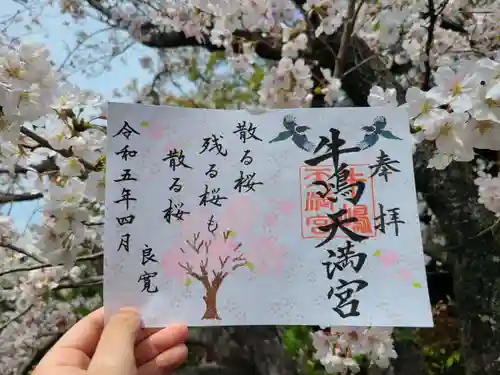 奉拝
牛嶋天満宮
散る桜
残る桜も
散る桜
良寛
令和五年四月